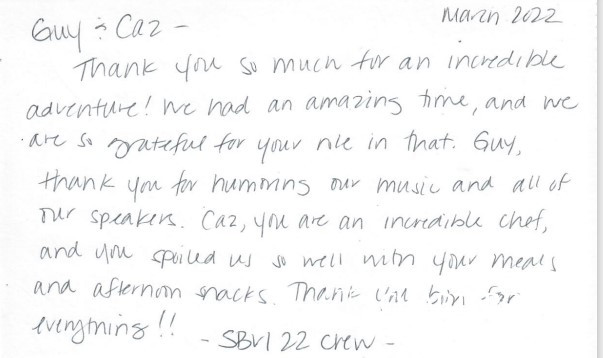 March 2022
Guy & Caz -
Thank you so much for an incredible
adventure! We had an amazing time, and we
are so grateful for your role in that. Guy,
thank you for humoring our music and all of
our speakers. Caz, you are an incredible chef,
and you spoiled us so well with your meals
and afternoon snacks. Thank you both for
everything!!
- SBVI 22 crew -